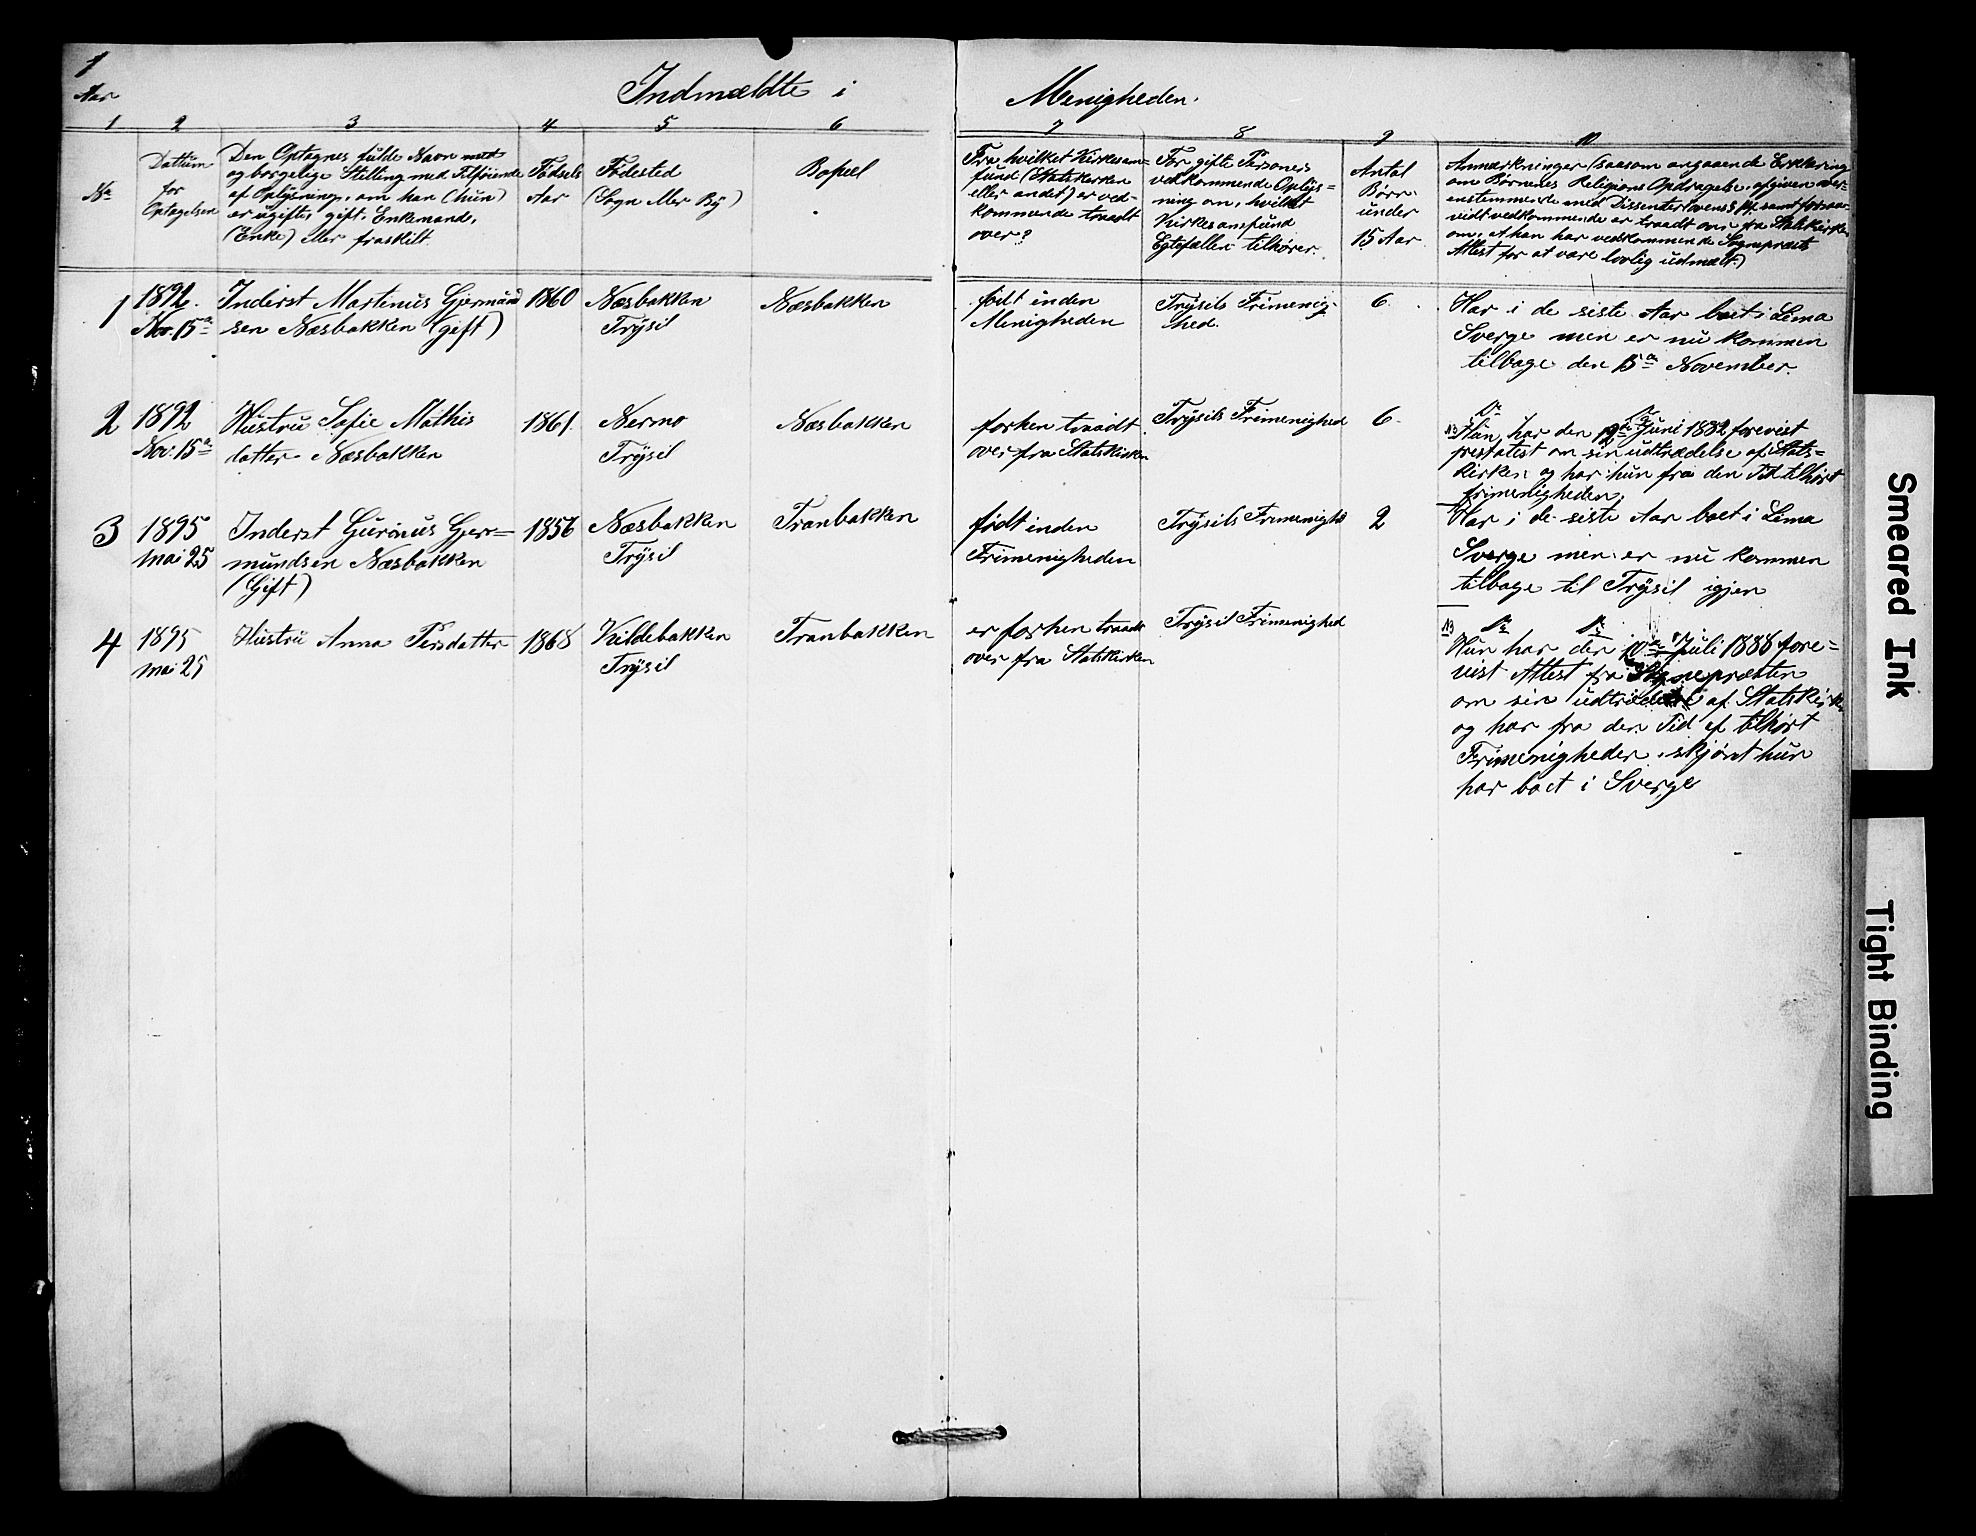 1
Aar
Indmældte i Menigheden.
1 2 3 4 5 6 7 8 9 10
No
Dattum
for
Optagelsen
Den Optagnes fulde Navn med
og borgelige Stilling med Tilføiende
af Oplysning, om han (hun)
er ugift, gift. Enkemand,
(Enke) eller fraskilt.
Fødsels
Aar
Fødested
(Sogn eller By)
Bopæl
Fra hvilket Kirkesam=
fund (Statskirken
eller andet) er ved=
kommende traadt
over?
For gifte Personers
vedkommende Oplys=
ning om, hvilket
Kirkesamfund
Egtefællen tilhører.
Antal
Børn
under
15 Aar
Anmærkninger (saasom angaaende Erklæring
om Børnenes Religions Opdragelse, afgiven over=
ensstemmende med Dissenterlovens § samt forsaa=
vidt vedkommende er traadt over fra Statskirken
om, at han har vedkommende Sognepræsts
Attest for at være lovlig udmeldt)
1
1892.
Nov. 15de
Inderst Martenus Gjermund
sen Næsbakken (gift)
1860
Næsbakken
Trysil
Næsbakken
født inden
Menigheden
Trysils Frimenig-
hed.
6.
Har i de siste Aar boet i Lima
Sverge men er nu kommen
tilbage den 15de November.
2
1892
Nov. 15de
Hustru Sofie Mathis
datter Næsbakken
1861.
Nermo
Trysil
Næsbakken
forhen traadt
over fra Statskirken
Trysils Frimenighed
6.
Hun har den Juni 1882 forevist
prestatest om sin udtrædelse af Stats=
kirken og har hun fra den Tid tilhørt
frimenigheden.
3
1895
Mai 25
Inderst Guronus Gjer=
mundsen Næsbakken
(Gift)
1856
Næsbakken
Trysil
Tranbakken
født inden
Frimenigheden
Trysils Frimenighd
2
Har i de siste Aar boet i Lima
Sverge men er nu kommen
tilbage til Trysil igjen
4
1895
Mai 25
Hustru Anna Persdatter
1868
Kildebakken
Trysil
Tranbakken
er forhen traadt
over fra Statskirken
Trysil Frimenighed
Hun har den 10de Juli 1888 fore=
vist Attest fra Sognepræsten
om sin udtrædelse af Statskirke
og har fra den Tid af tilhørt
Frimenigheden, skjønt hun
har boet i Sverge
Smeared Ink
Tight Binding